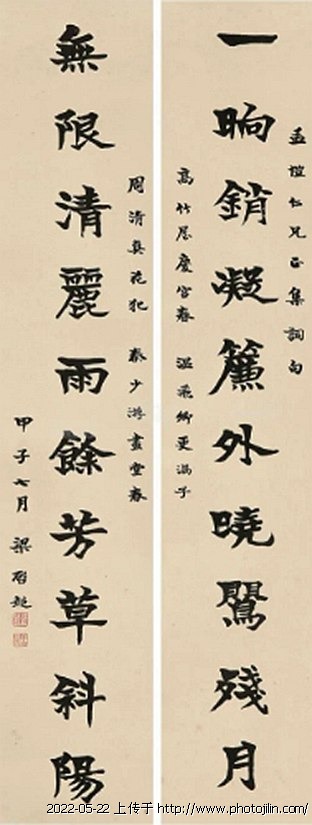 孟愷仁兄正集詞句
一晌銷凝簾外曉鶯殘月
高竹屋慶宮春 溫飛卿更漏子
周清真花犯 秦少游畫堂春
無限清麗雨餘芳草斜陽
甲子七月 梁啓超
2022-05-22 上传于 http://www.photojilin.com/